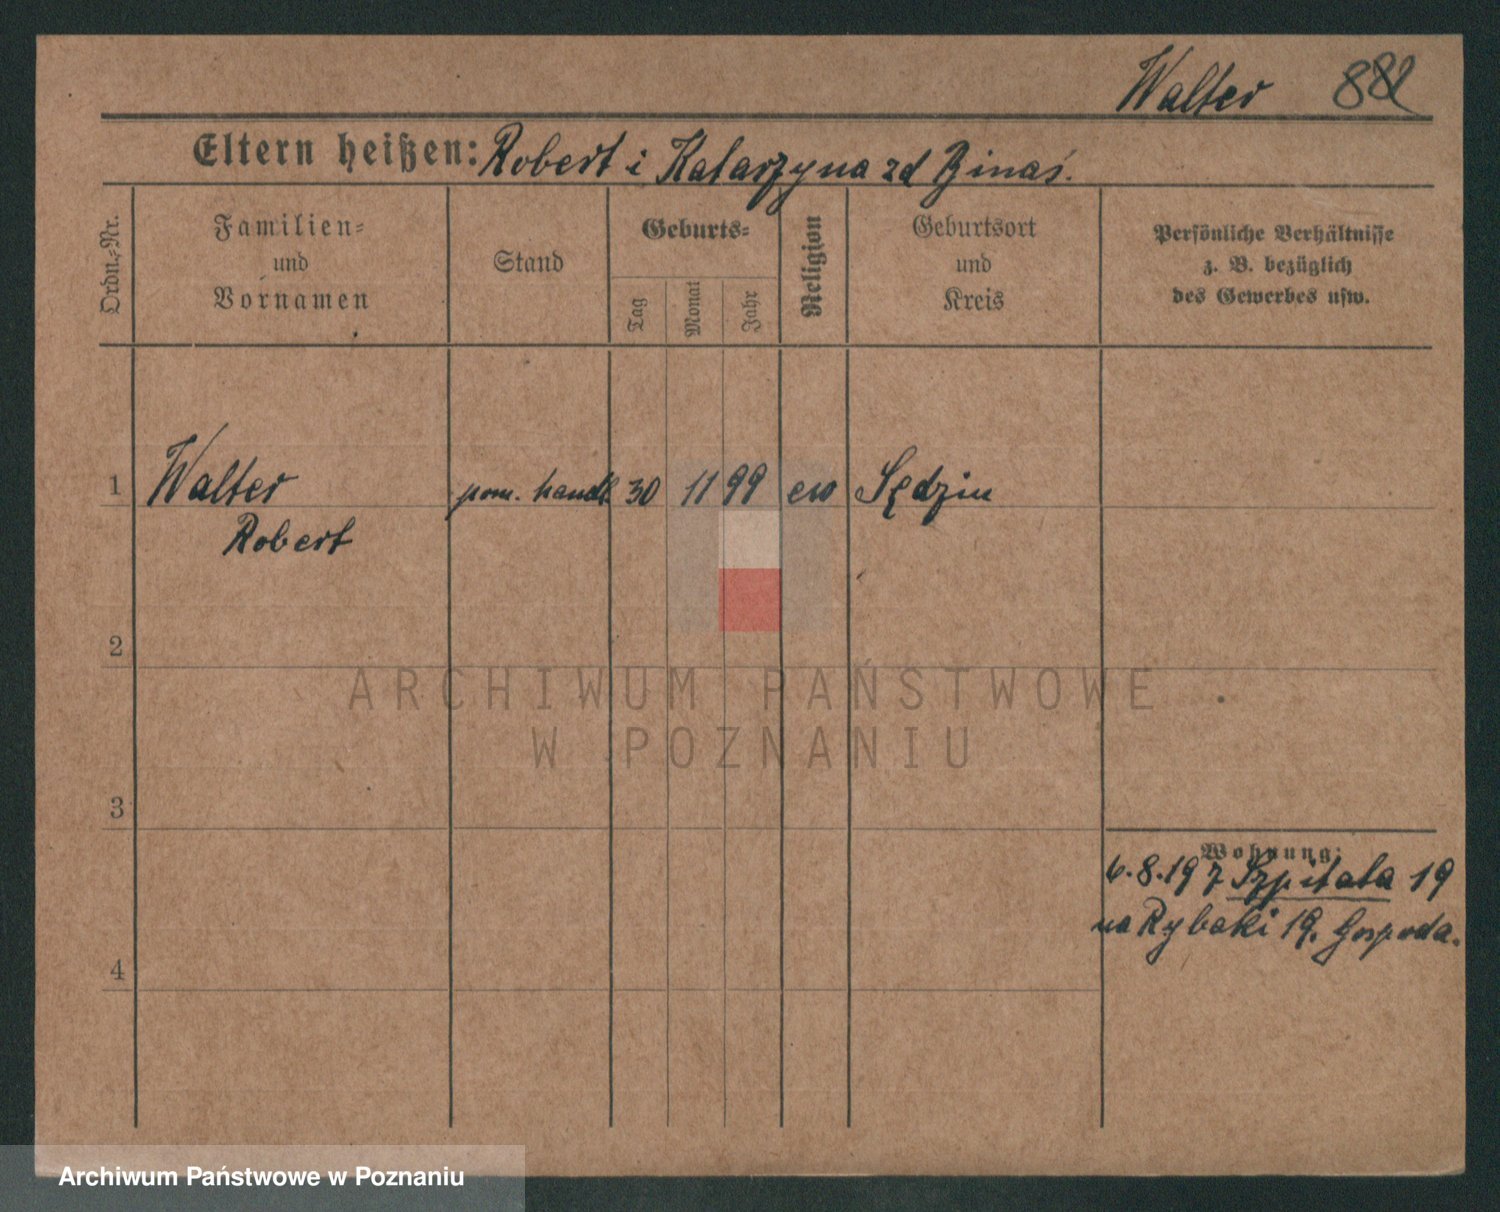 Walter 882
Eltern heißen: Robert i Katarzyna zd Binaś.
Ordn.-Nr.
Familien-
und
Vornamen
Stand
Geburts-
Tag
Monat
Jahr
Religion
Geburtsort
und
Kreis
Persönliche Verhältnisse
z. B. bezüglich
des Gewerbes usw.
1 Walter pom. handl. 30 11 99 ew Sędzin
Robert
2
3
4
Wohnung:
6.8.19 z Szpitala 19
na Rybaki 19. Gospoda.
ARCHIWUM PAŃSTWOWE
W POZNANIU
Archiwum Państwowe w Poznaniu